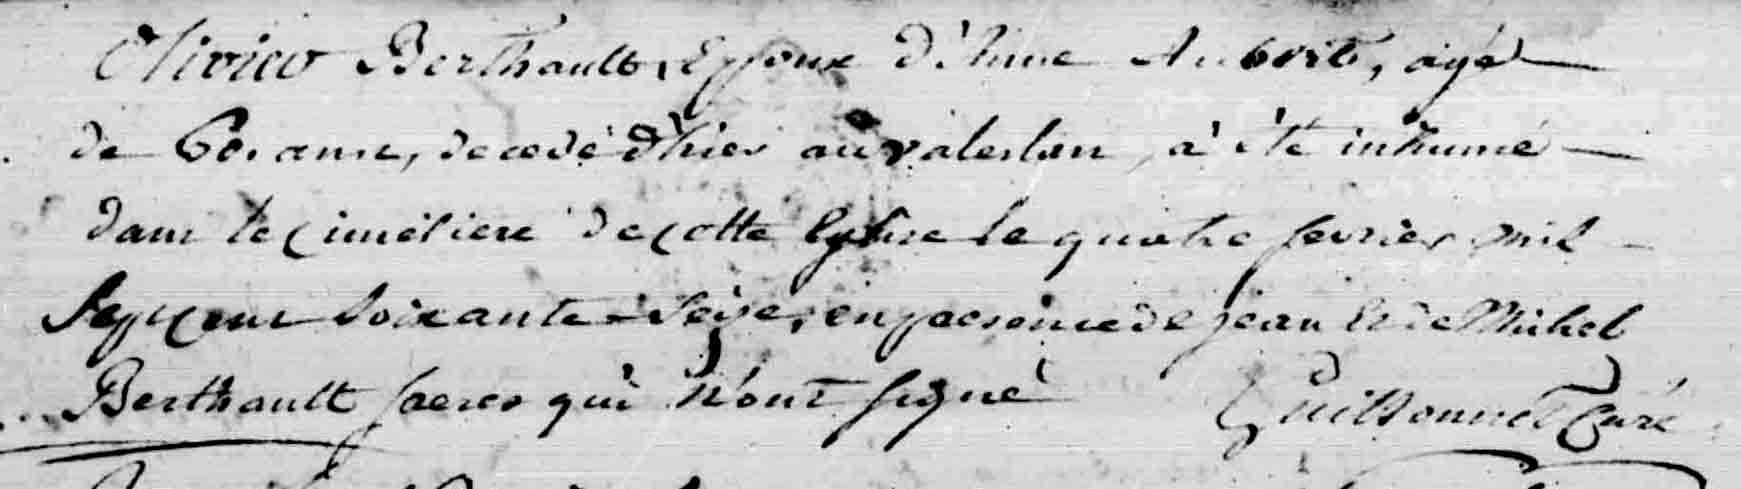 Olivier Berthault, Epoux d'Anne Auboits, agé
de 60 ans, decedé d'hier au valeslan, à été inhumé
dans le cimétiere de cette Eglise le quatre fevrier mil
sept cent soixante - seize, en presence de jean et de Michel
Berthault freres qui n'ont signé Guillonnet Curé